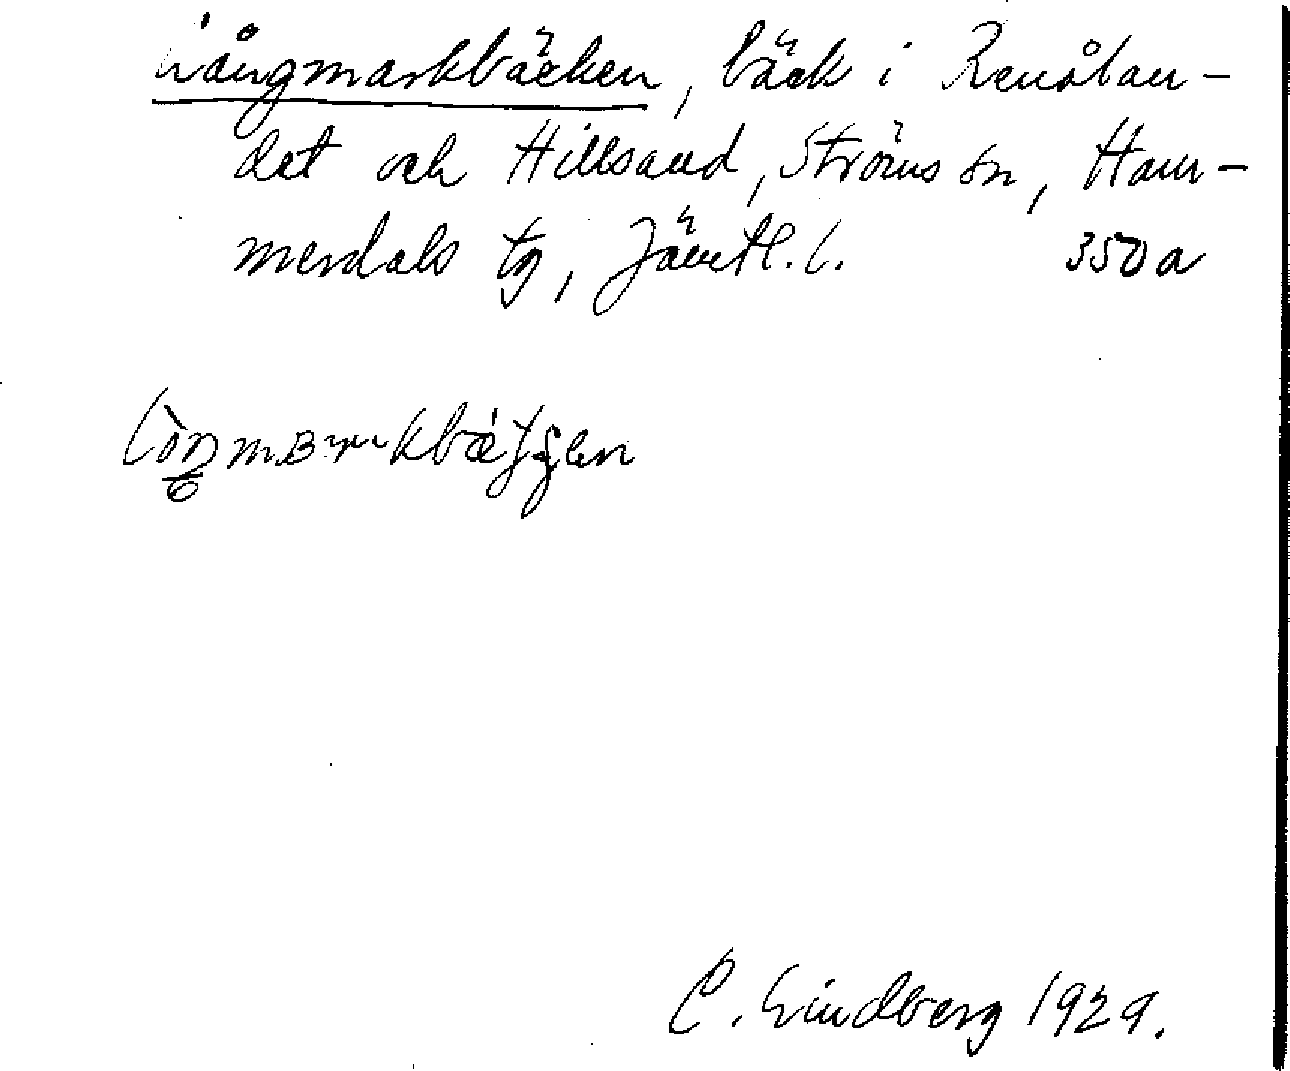 Långmarkbäcken, bäck i Renålan-
det och Hillsand, Ströms sn, Ham-
merdals tg, Jämtl. l. 350a
C. Lindberg 1929.